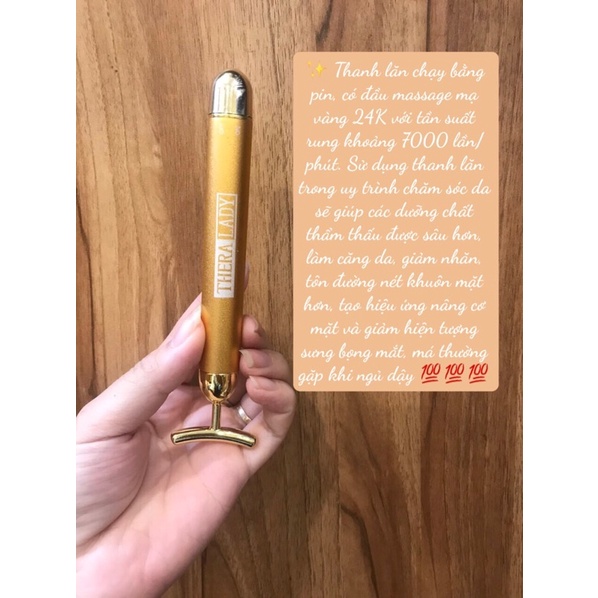 ✨ Thanh lăn chạy bằng
pin, có đầu massage mạ
vàng 24K với tần suất
rung khoảng 7000 lần/
phút. Sử dụng thanh lăn
trong uy trình chăm sóc da
sẽ giúp các dưỡng chất
thẩm thấu được sâu hơn,
làm căng da, giảm nhăn,
tôn đường nét khuôn mặt
hơn, tạo hiệu ứng nâng cơ
mặt và giảm hiện tượng
sưng bọng mắt, má thường
gặp khi ngủ dậy 💯💯💯
THERA LADY